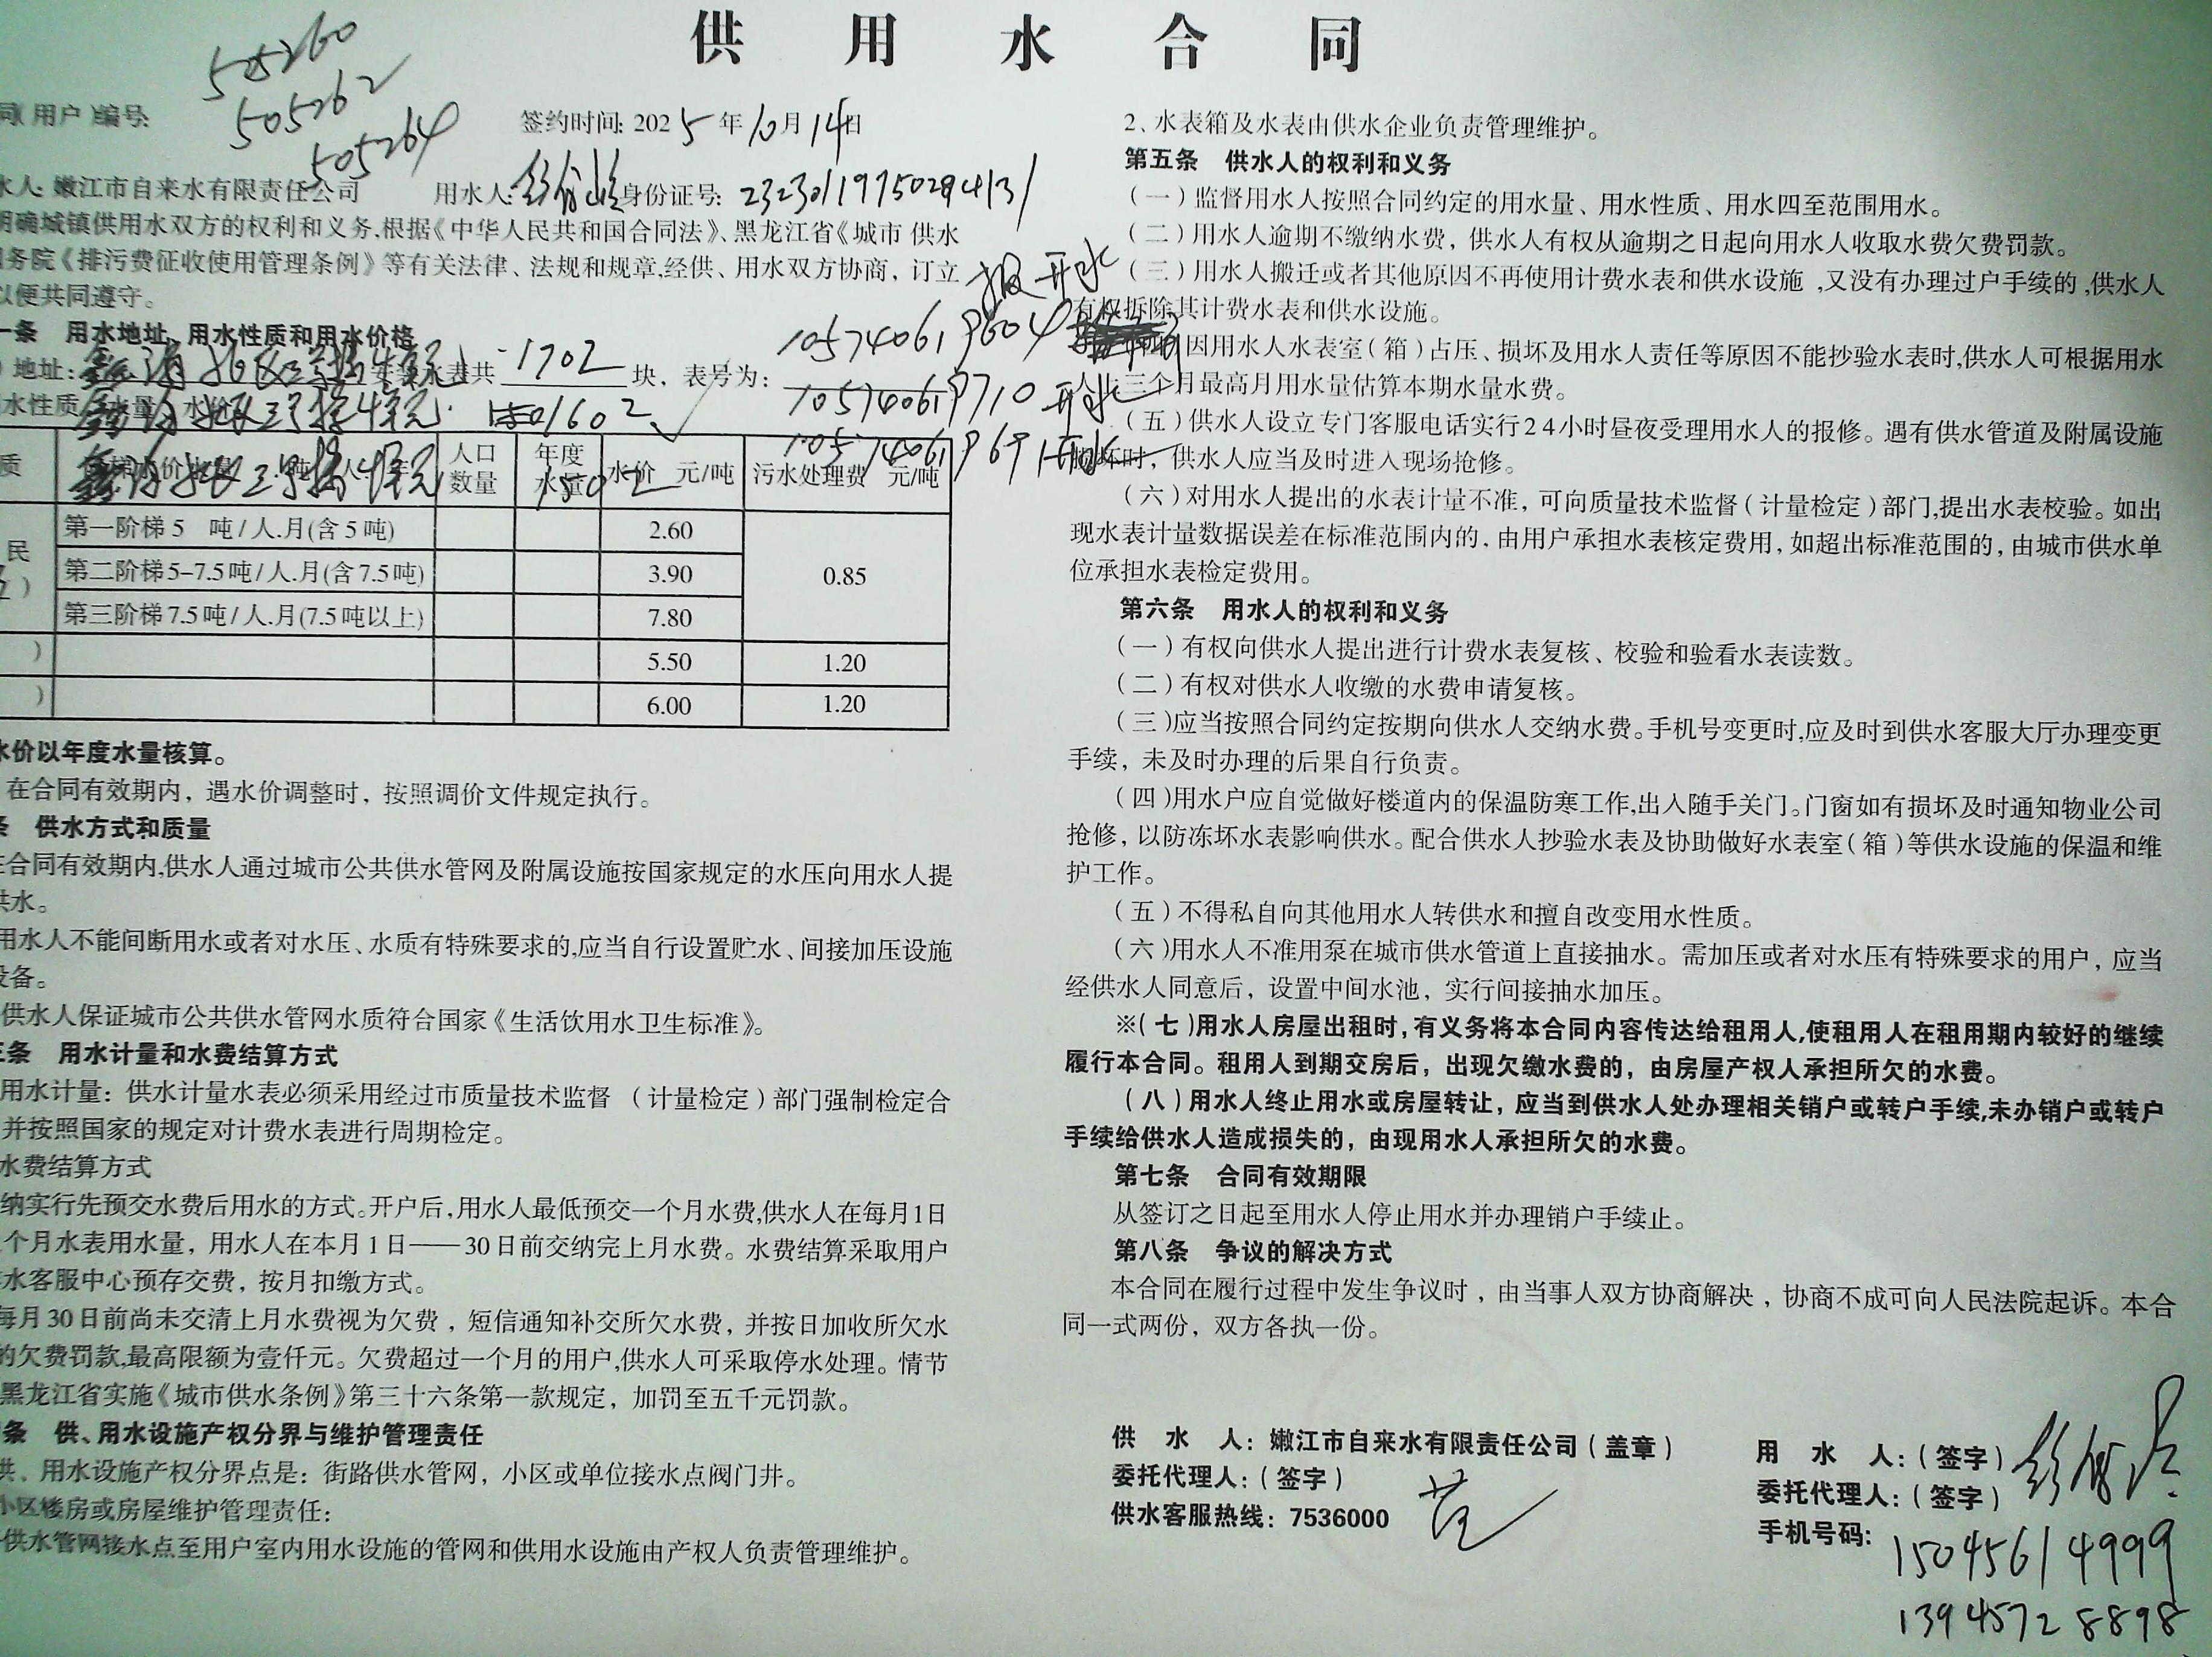 供用水合同
505260
505262
505264
同(用户)编号:
签约时间: 2025年10月14日
水人: 嫩江市自来水有限责任公司 用水人: 身份证号:
明确城镇供用水双方的权利和义务,根据《中华人民共和国合同法》、黑龙江省《城市 供水
务院《排污费征收使用管理条例》等有关法律、法规和规章,经供、用水双方协商，订立
以便共同遵守。
一条 用水地址、用水性质和用水价格
地址: 三号楼4单元 水表共 1702 块，表号为:
报 开水
105740619604
水性质 三号楼4单元 1602
105740619710 开水
三号楼4单元 1502
105740619691 开水
质 人口数量 年度水量 水价 元/吨 污水处理费 元/吨
民 第一阶梯 5 吨/人.月(含5吨) 2.60 0.85
第二阶梯5-7.5吨/人.月(含7.5吨) 3.90
第三阶梯7.5吨/人.月(7.5吨以上) 7.80
) 5.50 1.20
) 6.00 1.20
水价以年度水量核算。
在合同有效期内，遇水价调整时，按照调价文件规定执行。
条 供水方式和质量
在合同有效期内,供水人通过城市公共供水管网及附属设施按国家规定的水压向用水人提
供水。
用水人不能间断用水或者对水压、水质有特殊要求的,应当自行设置贮水、间接加压设施
设备。
供水人保证城市公共供水管网水质符合国家《生活饮用水卫生标准》。
三条 用水计量和水费结算方式
用水计量：供水计量水表必须采用经过市质量技术监督 （计量检定）部门强制检定合
并按照国家的规定对计费水表进行周期检定。
水费结算方式
纳实行先预交水费后用水的方式。开户后,用水人最低预交一个月水费,供水人在每月1日
个月水表用水量，用水人在本月1日——30日前交纳完上月水费。水费结算采取用户
水客服中心预存交费，按月扣缴方式。
每月30日前尚未交清上月水费视为欠费，短信通知补交所欠水费，并按日加收所欠水
的欠费罚款,最高限额为壹仟元。欠费超过一个月的用户,供水人可采取停水处理。情节
黑龙江省实施《城市供水条例》第三十六条第一款规定，加罚至五千元罚款。
条 供、用水设施产权分界与维护管理责任
供、用水设施产权分界点是：街路供水管网，小区或单位接水点阀门井。
小区楼房或房屋维护管理责任:
供水管网接水点至用户室内用水设施的管网和供用水设施由产权人负责管理维护。
2、水表箱及水表由供水企业负责管理维护。
第五条 供水人的权利和义务
（一）监督用水人按照合同约定的用水量、用水性质、用水四至范围用水。
（二）用水人逾期不缴纳水费，供水人有权从逾期之日起向用水人收取水费欠费罚款。
（三）用水人搬迁或者其他原因不再使用计费水表和供水设施，又没有办理过户手续的,供水人
有权拆除其计费水表和供水设施。
因用水人水表室（箱）占压、损坏及用水人责任等原因不能抄验水表时,供水人可根据用水
人上三个月最高月用水量估算本期水量水费。
（五）供水人设立专门客服电话实行24小时昼夜受理用水人的报修。遇有供水管道及附属设施
损坏时，供水人应当及时进入现场抢修。
（六）对用水人提出的水表计量不准，可向质量技术监督（计量检定）部门,提出水表校验。如出
现水表计量数据误差在标准范围内的，由用户承担水表核定费用，如超出标准范围的，由城市供水单
位承担水表检定费用。
第六条 用水人的权利和义务
（一）有权向供水人提出进行计费水表复核、校验和验看水表读数。
（二）有权对供水人收缴的水费申请复核。
（三）应当按照合同约定按期向供水人交纳水费。手机号变更时,应及时到供水客服大厅办理变更
手续，未及时办理的后果自行负责。
（四）用水户应自觉做好楼道内的保温防寒工作,出入随手关门。门窗如有损坏及时通知物业公司
抢修，以防冻坏水表影响供水。配合供水人抄验水表及协助做好水表室（箱）等供水设施的保温和维
护工作。
（五）不得私自向其他用水人转供水和擅自改变用水性质。
（六）用水人不准用泵在城市供水管道上直接抽水。需加压或者对水压有特殊要求的用户，应当
经供水人同意后，设置中间水池，实行间接抽水加压。
※（七）用水人房屋出租时,有义务将本合同内容传达给租用人,使租用人在租用期内较好的继续
履行本合同。租用人到期交房后，出现欠缴水费的，由房屋产权人承担所欠的水费。
（八）用水人终止用水或房屋转让，应当到供水人处办理相关销户或转户手续,未办销户或转户
手续给供水人造成损失的，由现用水人承担所欠的水费。
第七条 合同有效期限
从签订之日起至用水人停止用水并办理销户手续止。
第八条 争议的解决方式
本合同在履行过程中发生争议时，由当事人双方协商解决，协商不成可向人民法院起诉。本合
同一式两份，双方各执一份。
供 水 人：嫩江市自来水有限责任公司（盖章）
委托代理人：（签字）
供水客服热线：7536000
用 水 人：（签字）
委托代理人：（签字）
手机号码：
15045614999
13945728898